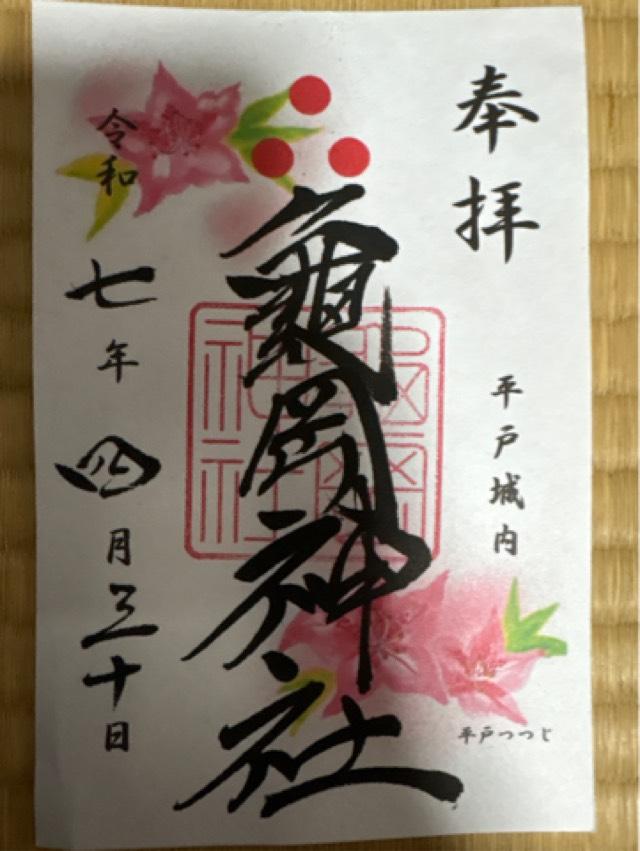 奉拝
平戸城内
龜岡神社
令和七年四月三十日
平戸つつじ